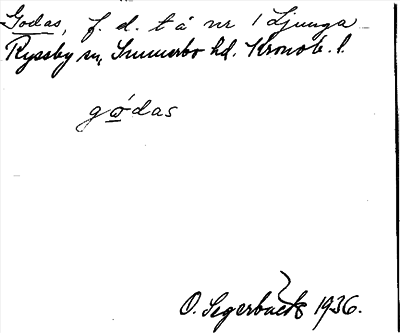 Godas, f. d. t å nr 1 Ljunga
Ryssby sn, Sunnerbo hd. Kronob. l.
gωdas
O. Segerbäck 1936.